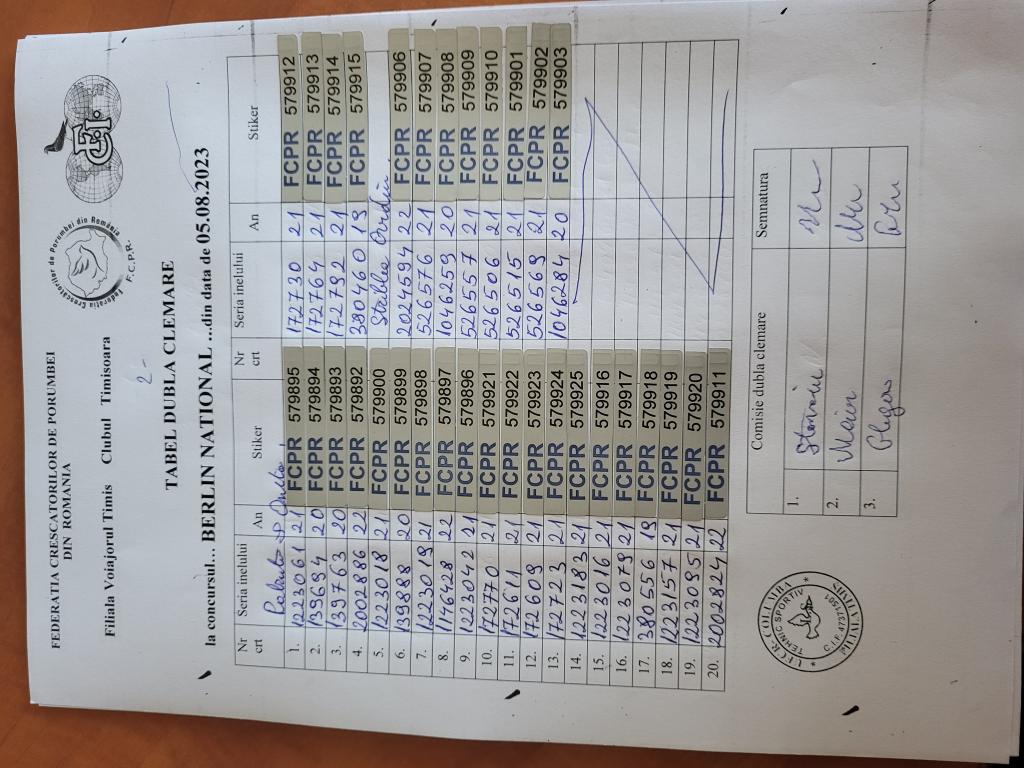 FEDERATIA CRESCATORILOR DE PORUMBEI
DIN ROMANIA
Federatia Crescatorilor de Porumbei din România
F.C.P.R.
FCI
Filiala Voiajorul Timis Clubul Timisoara
2-
TABEL DUBLA CLEMARE
la concursul... BERLIN NATIONAL ...din data de 05.08.2023
Nr crt Seria inelului An Stiker Nr crt Seria inelului An Stiker
1. 1223061 21 FCPR 579895 172730 21 FCPR 579912
2. 139694 20 FCPR 579894 172764 21 FCPR 579913
3. 139763 20 FCPR 579893 172792 21 FCPR 579914
4. 2002886 22 FCPR 579892 380460 19 FCPR 579915
5. 1223018 21 FCPR 579900 Ovidiu
6. 139888 20 FCPR 579899 2024594 22 FCPR 579906
7. 1223019 21 FCPR 579898 526576 21 FCPR 579907
8. 1146428 22 FCPR 579897 1046259 20 FCPR 579908
9. 1223042 21 FCPR 579896 526557 21 FCPR 579909
10. 172770 21 FCPR 579921 526506 21 FCPR 579910
11. 172611 21 FCPR 579922 526515 21 FCPR 579901
12. 172609 21 FCPR 579923 526569 21 FCPR 579902
13. 172723 21 FCPR 579924 1046284 20 FCPR 579903
14. 1223183 21 FCPR 579925
15. 1223016 21 FCPR 579916
16. 1223079 21 FCPR 579917
17. 380556 19 FCPR 579918
18. 1223157 21 FCPR 579919
19. 1223095 21 FCPR 579920
20. 2002824 22 FCPR 579911
Comisie dubla clemare Semnatura
1.
2.
3.
TEHNIC SPORTIV